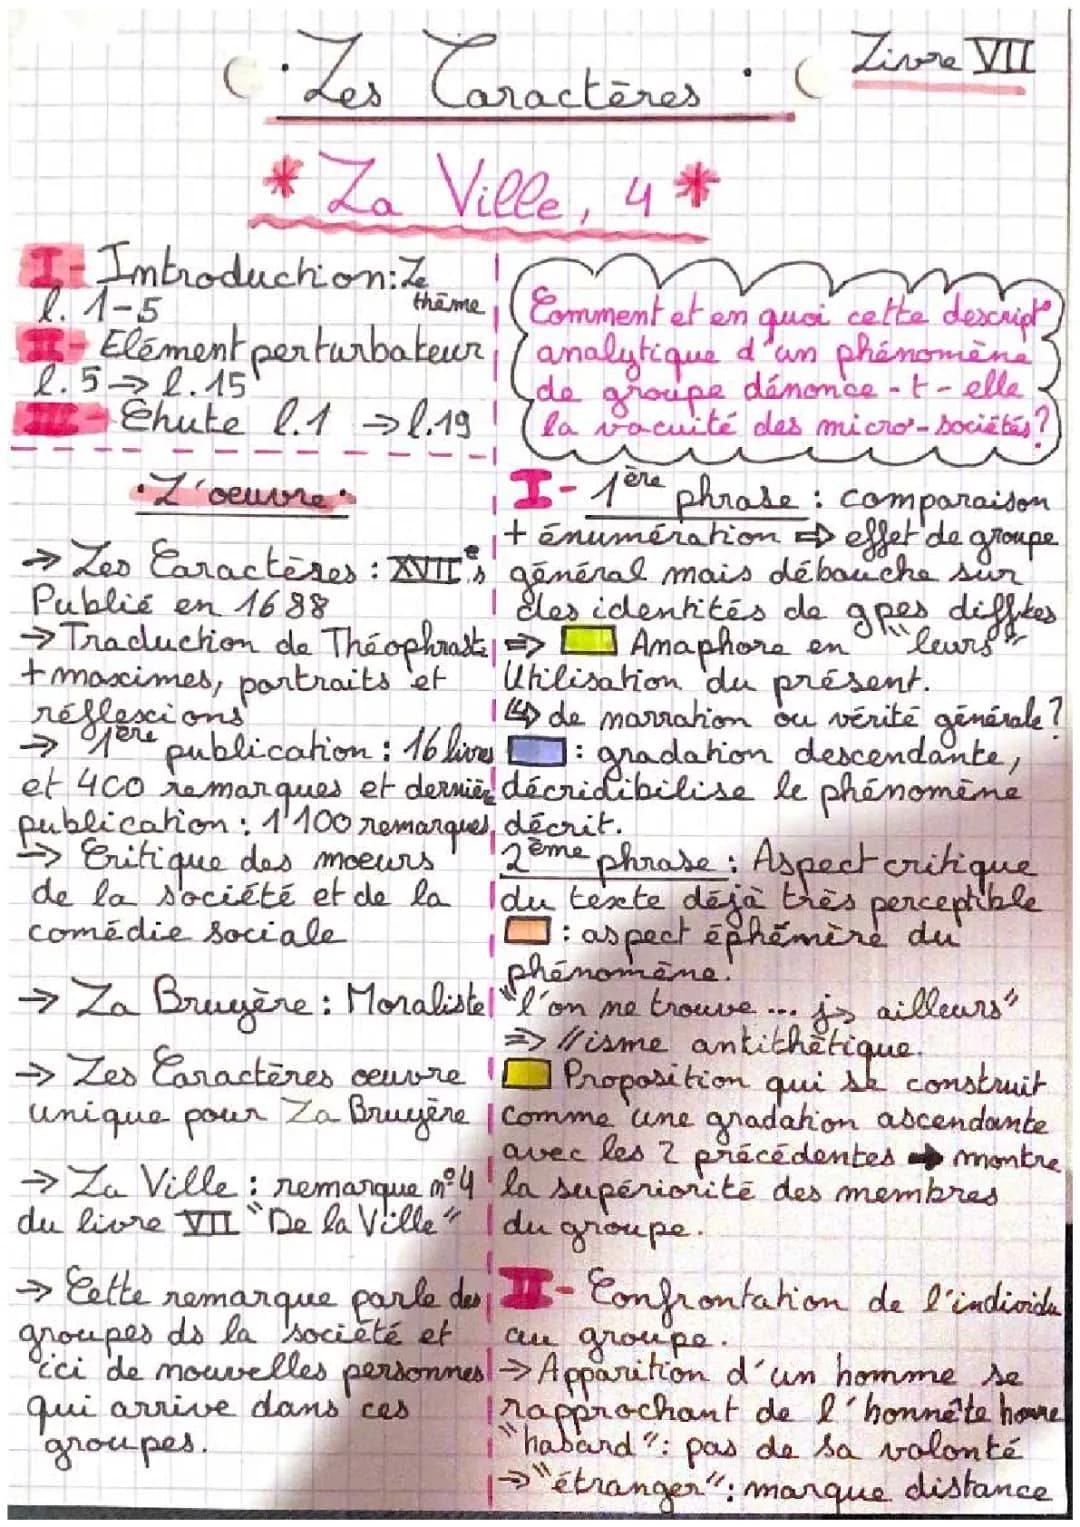 Les Caractères
Livre VII
* La Ville, 4 *
I- Introduction: Le thème
l. 1-5
II- Elément perturbateur
l. 5 → l. 15
III- Chute l.1 → l.19
Comment et en quoi cette descript°
analytique d'un phénomène
de groupe dénonce-t-elle
la vacuité des micro-sociétés?
• L'oeuvre •
→ Les Caractères : XVIIe s
Publié en 1688
→ Traduction de Théophraste
+ maximes, portraits et
réflexions
→ 1ère publication : 16 livres
et 400 remarques et dernière
publication : 1'100 remarques
→ Critique des moeurs
de la société et de la
comédie sociale
→ La Bruyère : Moraliste
→ Les Caractères oeuvre
unique pour La Bruyère
→ La Ville : remarque n°4
du livre VII "De la Ville"
→ Cette remarque parle des
groupes ds la société et
ici de nouvelles personnes
qui arrive dans ces
groupes.
I- 1ère phrase : comparaison
+ énumération ⇒ effet de groupe
général mais débouche sur
des identités de gpes difftes
⇒ Anaphore en "leurs"
Utilisation du présent.
↳ de narration ou vérité générale?
: gradation descendante,
décridibilise le phénomène
décrit.
2ème phrase : Aspect critique
du texte déjà très perceptible
: aspect éphémère du
phénomène.
"l'on ne trouve ... js ailleurs"
⇒ //isme antithétique.
Proposition qui se construit
comme une gradation ascendante
avec les 2 précédentes → montre
la supériorité des membres
du groupe.
II- Confrontation de l'individu
au groupe.
→ Apparition d'un homme se
rapprochant de l'honnête homme
"hasard": pas de sa volonté
→ "étranger": marque distance